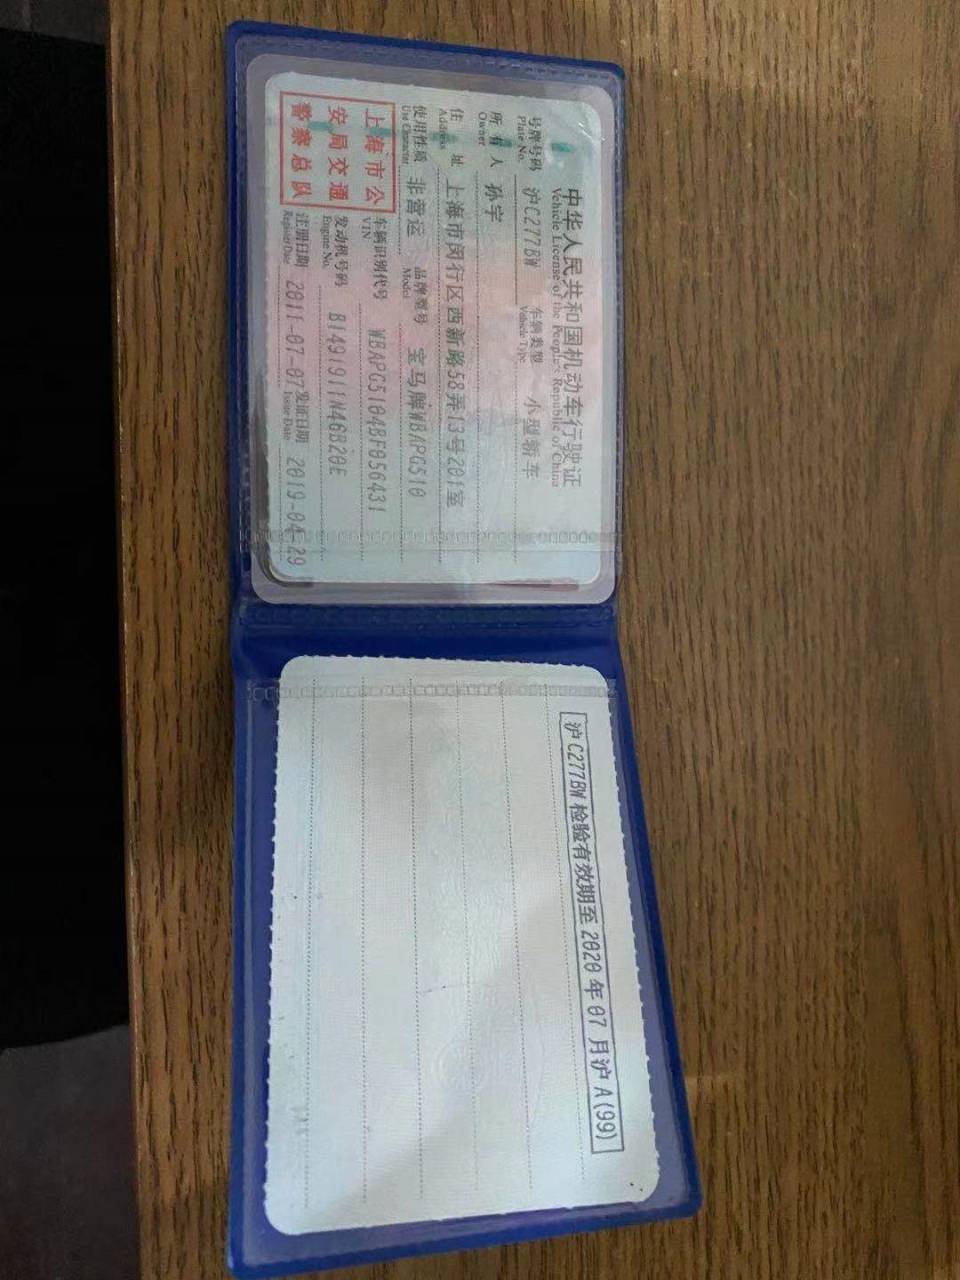 中华人民共和国机动车行驶证
Vehicle License of the People's Republic of China
号牌号码 沪C277BW 车辆类型 小型轿车
Plate No. Vehicle Type
所有人 孙宇
Owner
住址 上海市闵行区西新路58弄13号201室
Address
使用性质 非营运 品牌型号 宝马牌WBAPG510
Use Character Model
上海市公
安局交通
警察总队
车辆识别代号 WBAPG5104BF056431
VIN
发动机号码 B1491911N46B20E
Engine No.
注册日期 2011-07-07 发证日期 2019-04-29
Register Date Issue Date
沪C277BW 检验有效期至 2020 年 07 月沪 A(99)